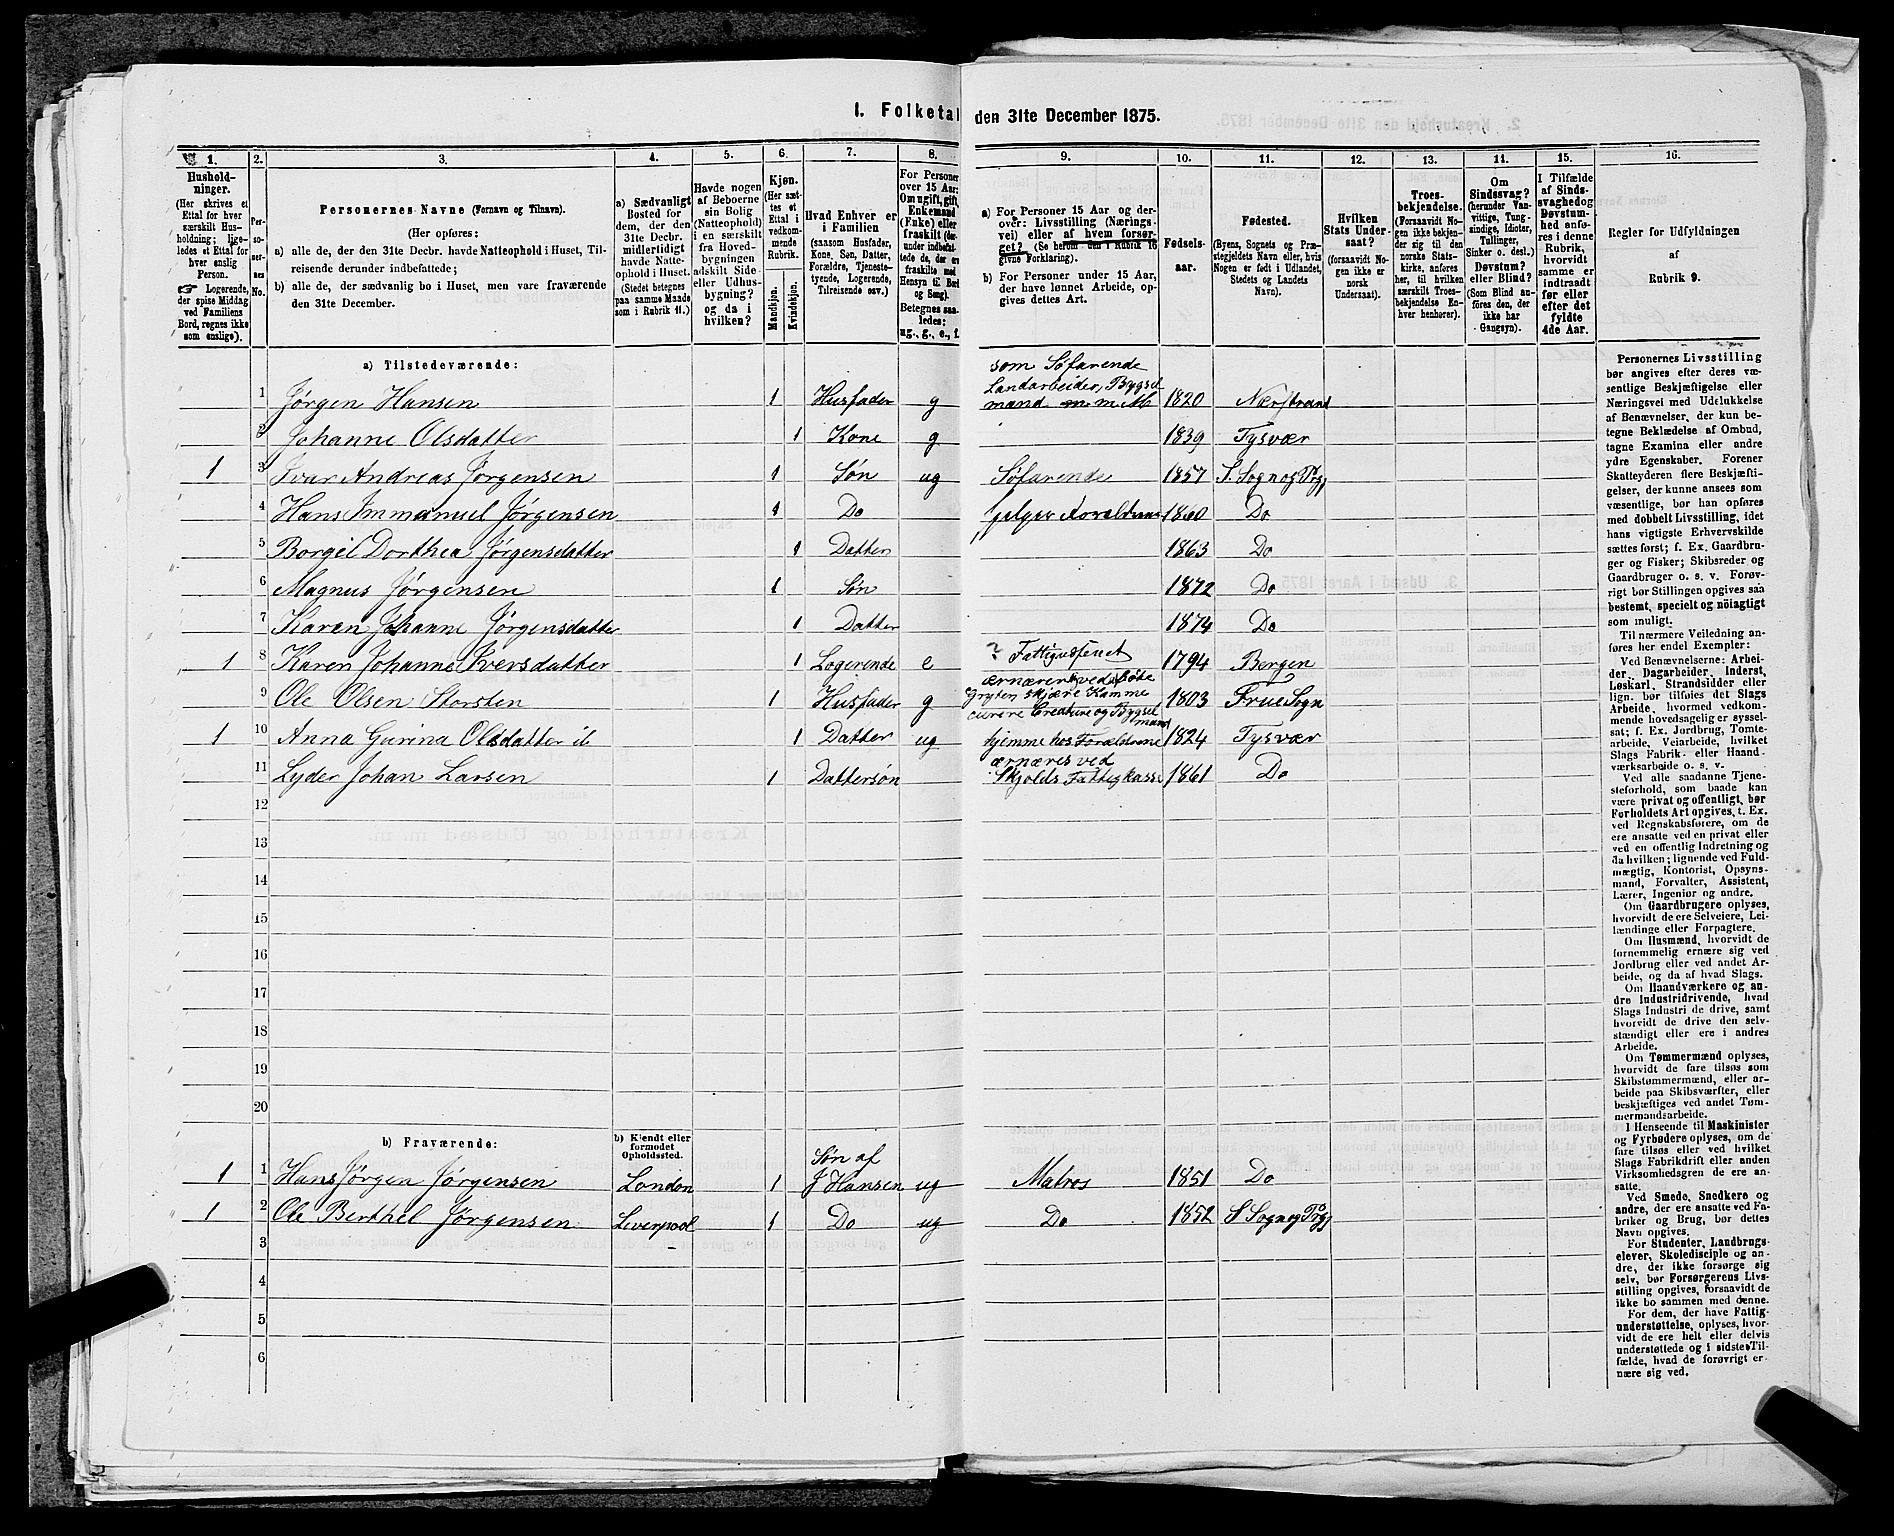 1. Folketal
den 31te December 1875.
1.
Hushold-
ninger.
(Her skrives et
Ettal for hver
særskilt Hus-
holdning; lige-
ledes et Ettal
for hver enslig
Person.
☛ Logerende,
der spise Middag
ved Familiens
Bord, regnes ikke
som enslige).
2.
Per-
so-
ner-
nes
No.
3.
Personernes Navne (Fornavn og Tilnavn).
(Her opføres:
a) alle de, der den 31te Decbr. havde Natteophold i Huset, Til-
reisende derunder indbefattede;
b) alle de, der sædvanlig bo i Huset, men vare fraværende
den 31te December.
4.
a) Sædvanligt
Bosted for
dem, der den
31te Decbr.
midlertidigt
havde Natte-
ophold i Huset.
(Stedet betegnes
paa samme Maade
som i Rubrik 11.)
5.
Havde nogen
af Beboerne
sin Bolig
(Natteophold)
i en særskilt
fra Hoved-
bygningen
adskilt Side-
eller Udhus-
bygning?
og da i
hvilken?
6.
Kjøn.
(Her sæt-
tes et
Ettal i
vedkom-
mende
Rubrik.
Mandkjøn.
Kvindekjøn.
7.
Hvad Enhver er
i Familien
(saasom Husfader,
Kone, Søn, Datter,
Forældre, Tjeneste-
tyende, Logerende,
Tilreisende osv.)
8.
For Personer
over 15 Aar:
Om ugift, gift,
Enkemand
(Enke) eller
fraskilt
ug., g., e., f.
9.
a) For Personer 15 Aar og der-
over: Livsstilling (Nærings-
vei) eller af hvem forsør-
get? (Se herom den i Rubrik 16
givne Forklaring).
b) For Personer under 15 Aar,
der have lønnet Arbeide, op-
gives dettes Art.
10.
Fødsels-
aar.
11.
Fødested.
(Byens, Sognets og Præ-
stegjeldets Navn eller, hvis
Nogen er født i Udlandet,
Stedets og Landets
Navn).
12.
Hvilken
Stats Under-
saat?
(forsaavidt No-
gen ikke er
norsk
Undersaat).
13.
Troes-
bekjendelse.
(Forsaavidt No-
gen ikke bekjen-
der sig til den
norske Stats-
kirke, anføres
her, til hvilken
særskilt Troes-
bekjendelse En-
hver henhører).
14.
Om
Sindssvag?
(herunder Van-
vittige, Tung-
sindige, Idioter,
Tullinger,
Sinker o. desl.)
Døvstum?
eller Blind?
(Som Blind an-
føres den, der
ikke har
Gangsyn).
15.
I Tilfælde
af Sinds-
svaghed og
Døvstum-
hed anfø-
res i denne
Rubrik,
hvorvidt
samme er
indtraadt
før eller
efter det
fyldte
4de Aar.
16.
Regler for Udfyldningen
af
Rubrik 9.
a) Tilstedeværende:
som Søfarende
Landarbeider, Bygsel
1 Jørgen Hansen 1 Husfader g mand m m 1820 Nærstrand
2 Johanne Olsdatter 1 Kone g 1839 Tysvær
1 3 Ivar Andreas Jørgensen 1 Søn ug Søfarende 1857 S. Sogn og Prgj
4 Hans Immanuel Jørgensen 1 Do 1860 Do
5 Borgil Dorthea Jørgensdatter 1 Datter 1863 Do
6 Magnus Jørgensen 1 Søn 1872 Do
7 Karen Johanne Jørgensdatter 1 Datter 1874 Do
1 8 Karen Johanne Iversdatter 1 Logerende e ? 1794 Bergen
ærnærer ved
9 Ole Olsen Storsten 1 Husfader g Gryten skjære Kamme 1803 Frue Sogn
curere Creature og Bygsel
mand
1 10 Anna Gurina Olsdatter 1 Datter ug hjemme hos Forældrene 1824 Tysvær
ærnæres ved
11 Lyder Johan Larsen 1 Dattersøn Skjolds Fattigkasse 1861 Do
12
13
14
15
16
17
18
19
20
b) Fraværende:
b) Kjendt eller
formodet
Opholdssted.
Søn af
1 1 Hans Jørgen Jørgensen London 1 J Hansen ug Matros 1851 Do
1 2 Ole Berthel Jørgensen Liverpool 1 Do ug Do 1852 S Sogn og Prgj
3
4
5
6
Personernes Livsstilling
bør angives efter deres væ-
sentlige Beskjæftigelse eller
Næringsvei med Udelukkelse
af Benævnelser, der kun be-
tegne Beklædelse af Ombud,
tagne Examina eller andre
ydre Egenskaber. Forener
Skatteyderen flere Beskjæfti-
gelser, der kunne ansees som
væsentlige, bør han opføres
med dobbelt Livsstilling, idet
hans vigtigste Erhvervskilde
sættes først; f. Ex. Gaardbru-
ger og Fisker; Skibsreder og
Gaardbruger o. s. v. Forøv-
rigt bør Stillingen opgives saa
bestemt, specielt og nöiagtigt
som muligt.
Til nærmere Veiledning an-
føres her endel Exempler:
Ved Benævnelserne: Arbei-
der, Dagarbeider, Inderst,
Løskarl, Strandsidder eller
lign. bør tilføies det Slags
Arbeide, hvormed vedkom-
mende hovedsagelig er syssel-
sat; f. Ex. Jordbrug, Tomte-
arbeide, Veiarbeide, hvilket
Slags Fabrik- eller Haand-
værksarbeide o. s. v.
Ved alle saadanne Tjene-
steforhold, som baade kan
være privat og offentligt, bør
Forholdets Art opgives, t. Ex.
ved Regnskabsførere, om de
ere ansatte ved en privat eller
ved en offentlig Indretning og
da hvilken; lignende ved Fuld-
mægtig, Kontorist, Opsyns-
mand, Forvalter, Assistent,
Lærer, Ingeniør og andre.
Om Gaardbrugere oplyses,
hvorvidt de ere Selveiere, Lei-
lændinge eller Forpagtere.
Om Husmænd, hvorvidt de
fornemmelig ernære sig ved
Jordbrug eller ved andet Ar-
beide, og da af hvad Slags.
Om Haandværkere og an-
dre Industridrivende, hvad
Slags Industri de drive, samt
hvorvidt de drive den selv-
stændigt eller ere i andres
Arbeide.
Om Tømmermænd oplyses,
hvorvidt de fare tilsøs som
Skibstømmermænd, eller ar-
beide paa Skibsværfter, eller
beskjæftiges ved andet Tøm-
mermandsarbeide.
I Henseende til Maskinister
og Fyrbødere oplyses, om de
fare tilsøs eller ved hvilket
Slags Fabrikdrift eller anden
Virksomhedsgren de ere an-
satte.
Ved Smede, Snedkere og
andre, der ere ansatte ved Fa-
briker og Brug, bør dettes
Navn opgives.
For Studenter, Landbrugs-
elever, Skoledisciple og an-
dre, der ikke forsørge sig
selv, bør Forsørgerens Livs-
stilling opgives, forsaavidt de
ikke bo sammen med denne.
For dem, der have Fattig-
understøttelse, oplyses, hvor-
vidt de ere helt eller delvis
understøttede og i sidste Til-
fælde, hvad de forøvrigt er-
nære sig ved.